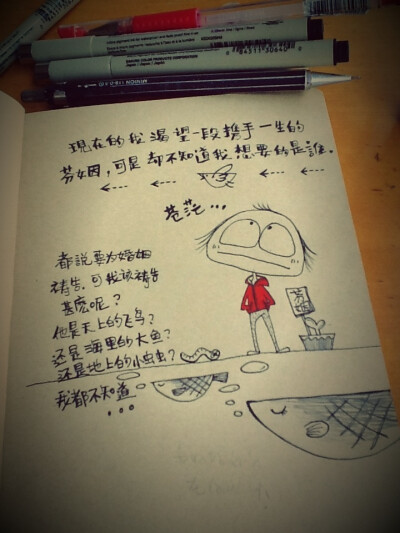 現在的我渴望一段携手一生的
芬姻，可是却不知道我想要的是誰.
苍茫...
都说要为婚姻
祷告,可我该祷告
甚麼呢？
他是天上的飞鸟？
还是海里的大鱼？
还是地上的小虫虫？
我都不知道
...